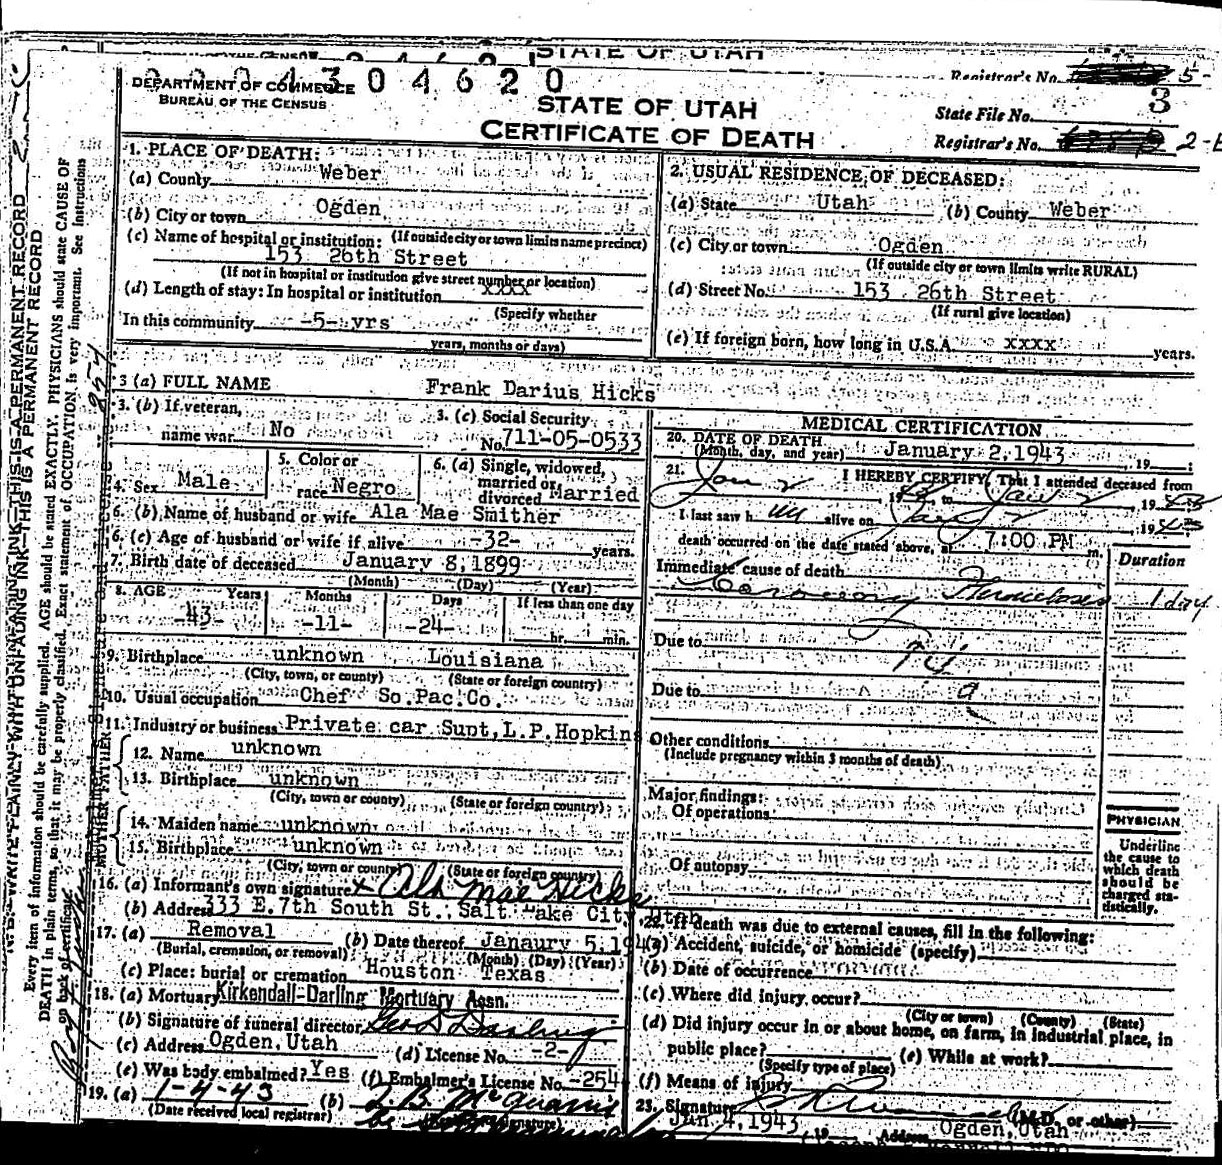 STATE OF UTAH
Registrar's No. 5-
2 2 0 4 3 0 4 6 2 0
DEPARTMENT OF COMMERCE
BUREAU OF THE CENSUS
STATE OF UTAH
CERTIFICATE OF DEATH
State File No. 3
Registrar's No.
1. PLACE OF DEATH:
(a) County Weber
(b) City or town Ogden
(c) Name of hospital or institution: (If outside city or town limits name precinct)
153 26th Street
(If not in hospital or institution give street number or location)
(d) Length of stay: In hospital or institution xxxx
(Specify whether
In this community -5- yrs
years, months or days)
2. USUAL RESIDENCE OF DECEASED:
(a) State Utah (b) County Weber
(c) City or town Ogden
(If outside city or town limits write RURAL)
(d) Street No. 153 26th Street
(If rural give location)
(e) If foreign born, how long in U.S.A. xxxx years.
3 (a) FULL NAME Frank Darius Hicks
3. (b) If veteran,
name war No
3. (c) Social Security
No. 711-05-0533
4. Sex Male
5. Color or
race Negro
6. (a) Single, widowed,
married or
divorced Married
6. (b) Name of husband or wife Ala Mae Smither
6. (c) Age of husband or wife if alive -32- years.
7. Birth date of deceased January 8, 1899
(Month) (Day) (Year)
8. AGE Years Months Days If less than one day
-43- -11- -24- hr. min.
9. Birthplace unknown Louisiana
(City, town, or county) (State or foreign country)
10. Usual occupation Chef So.Pac.Co.
11. Industry or business Private car Supt, L.P. Hopkins
FATHER
12. Name unknown
13. Birthplace unknown
(City, town or county) (State or foreign country)
MOTHER
14. Maiden name unknown
15. Birthplace unknown
(City, town or county) (State or foreign country)
16. (a) Informant's own signature x Ala Mae Hicks
(b) Address 333 E. 7th South St., Salt Lake City, Utah
17. (a) Removal (b) Date thereof Janaury 5, 1943
(Burial, cremation, or removal) (Month) (Day) (Year)
(c) Place: burial or cremation Houston Texas
18. (a) Mortuary Kirkendall-Darling Mortuary Assn.
(b) Signature of funeral director Geo D Darling
(c) Address Ogden, Utah (d) License No. -2-
(e) Was body embalmed? Yes (f) Embalmer's License No. -254
19. (a) 1-4-43 (b)
(Date received local registrar)
MEDICAL CERTIFICATION
20. DATE OF DEATH
(Month, day, and year) January 2, 1943, 19
21. I HEREBY CERTIFY, That I attended deceased from
Jan 2 1943 to Jan 2 1943
I last saw h im alive on Jan 2 1943
death occurred on the date stated above, at 7:00 PM m.
Duration
Immediate cause of death
Coronary Thrombosis 1 day
Due to
Due to
Other conditions
(Include pregnancy within 3 months of death)
Major findings:
Of operations
Of autopsy
PHYSICIAN
Underline
the cause to
which death
should be
charged sta-
tistically.
22. If death was due to external causes, fill in the following:
(a) Accident, suicide, or homicide (specify)
(b) Date of occurrence
(c) Where did injury occur?
(City or town) (County) (State)
(d) Did injury occur in or about home, on farm, in industrial place, in
public place? (e) While at work?
(Specify type of place)
(f) Means of injury
23. Signature (M.D. or other)
Jan 4, 1943 19 Address Ogden, Utah
WRITE PLAINLY WITH UNFADING INK—THIS IS A PERMANENT RECORD
Every item of information should be carefully supplied. AGE should be stated EXACTLY. PHYSICIANS should state CAUSE OF
DEATH in plain terms, so that it may be properly classified. Exact statement of OCCUPATION is very important. See Instructions
on back of certificate